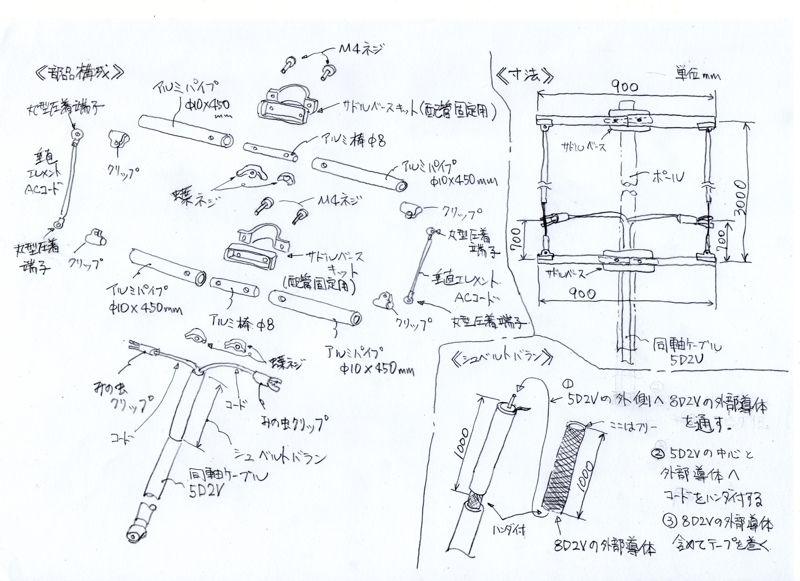 《部品構成》
M4ネジ
丸型圧着端子
アルミパイプ
φ10×450
mm
サドルベースキット(配管固定用)
垂直
エレメント
ACコード
クリップ
アルミ棒φ8
アルミパイプ
φ10×450mm
蝶ネジ
M4ネジ
クリップ
丸型圧着
端子
クリップ
サドルベース
キット
(配管固定用)
丸型圧着
端子
垂直エレメント
ACコード
アルミパイプ
φ10×450mm
アルミ棒φ8
クリップ
丸型圧着端子
蝶ネジ
アルミパイプ
φ10×450mm
みの虫
クリップ
コード
みの虫クリップ
コード
シュペルトバラン
同軸ケーブル
5D2V
《寸法》
単位mm
900
サドルベース
ポール
3000
700
700
サドルベース
900
同軸ケーブル
5D2V
《シュペルトバラン》
1000
ハンダ付
ここはフリー
1000
8D2Vの外部導体
① 5D2Vの外側へ8D2Vの外部導体
を通す.
② 5D2Vの中心と
外部導体へ
コードをハンダ付する
③ 8D2Vの外部導体
含めてテープを巻く